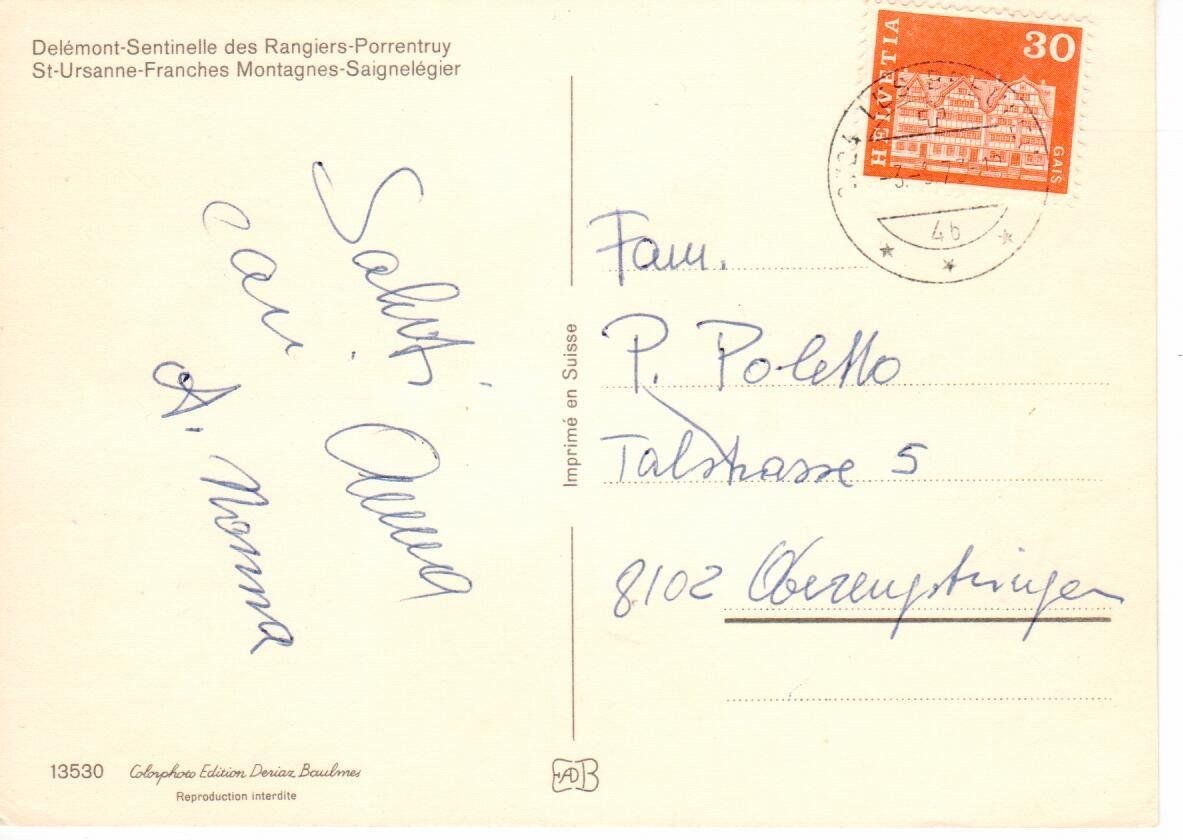 Delémont-Sentinelle des Rangiers-Porrentruy
St-Ursanne-Franches Montagnes-Saignelégier
HELVETIA
30
GAIS
4b
Saluti
cari
Anna
A. Nonna
Imprimé en Suisse
Fam.
P. Poletto
Talstrasse 5
8102 Oberengstringen
13530 Colorphoto Edition Deriaz Baulmes
Reproduction interdite